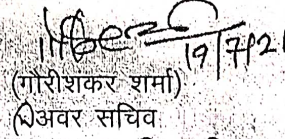 19/7/21
(गोरीशकर शर्मा)
अवर सचिव